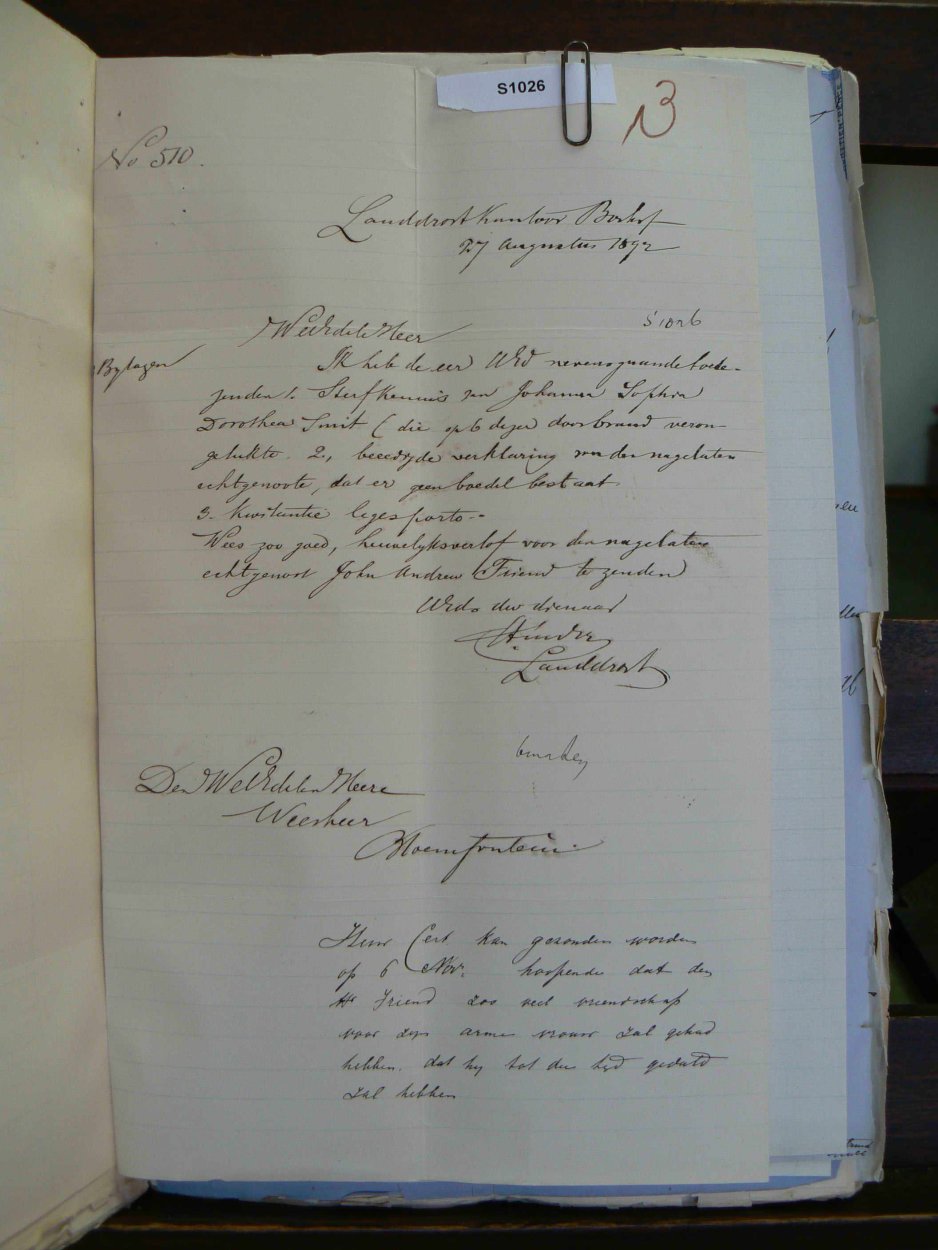 S1026
13
No 510.
Landdrostkantoor Boshof
27 Augustus 1892
WelEdele Heer
S1026
Bylagen
Ik heb de eer UEd nevensgaande toete-
zenden 1. Sterfkennis van Johanna Sophia
Dorothea Smit (die op 6 dezer door brand veron-
gelukte. 2., beeedigde verklaring van den nagelaten
echtgenoote, dat er geen boedel bestaat
3. Kwitantie leges porto.-
Wees zoo goed, huwelyksverlof voor den nagelaten
echtgenoot John Andrew Friend te zenden
UEds dw dienaar
Landdrost
Den WelEdelen Heere
Weesheer
Bloemfontein.
Huw Cert kan gezonden worden
op 6 Nov. hoopende dat den
Hr Friend zoo veel vriendschap
voor zyn arme vrouw zal gehad
hebben. dat hy tot den tyd geduld
zal hebben